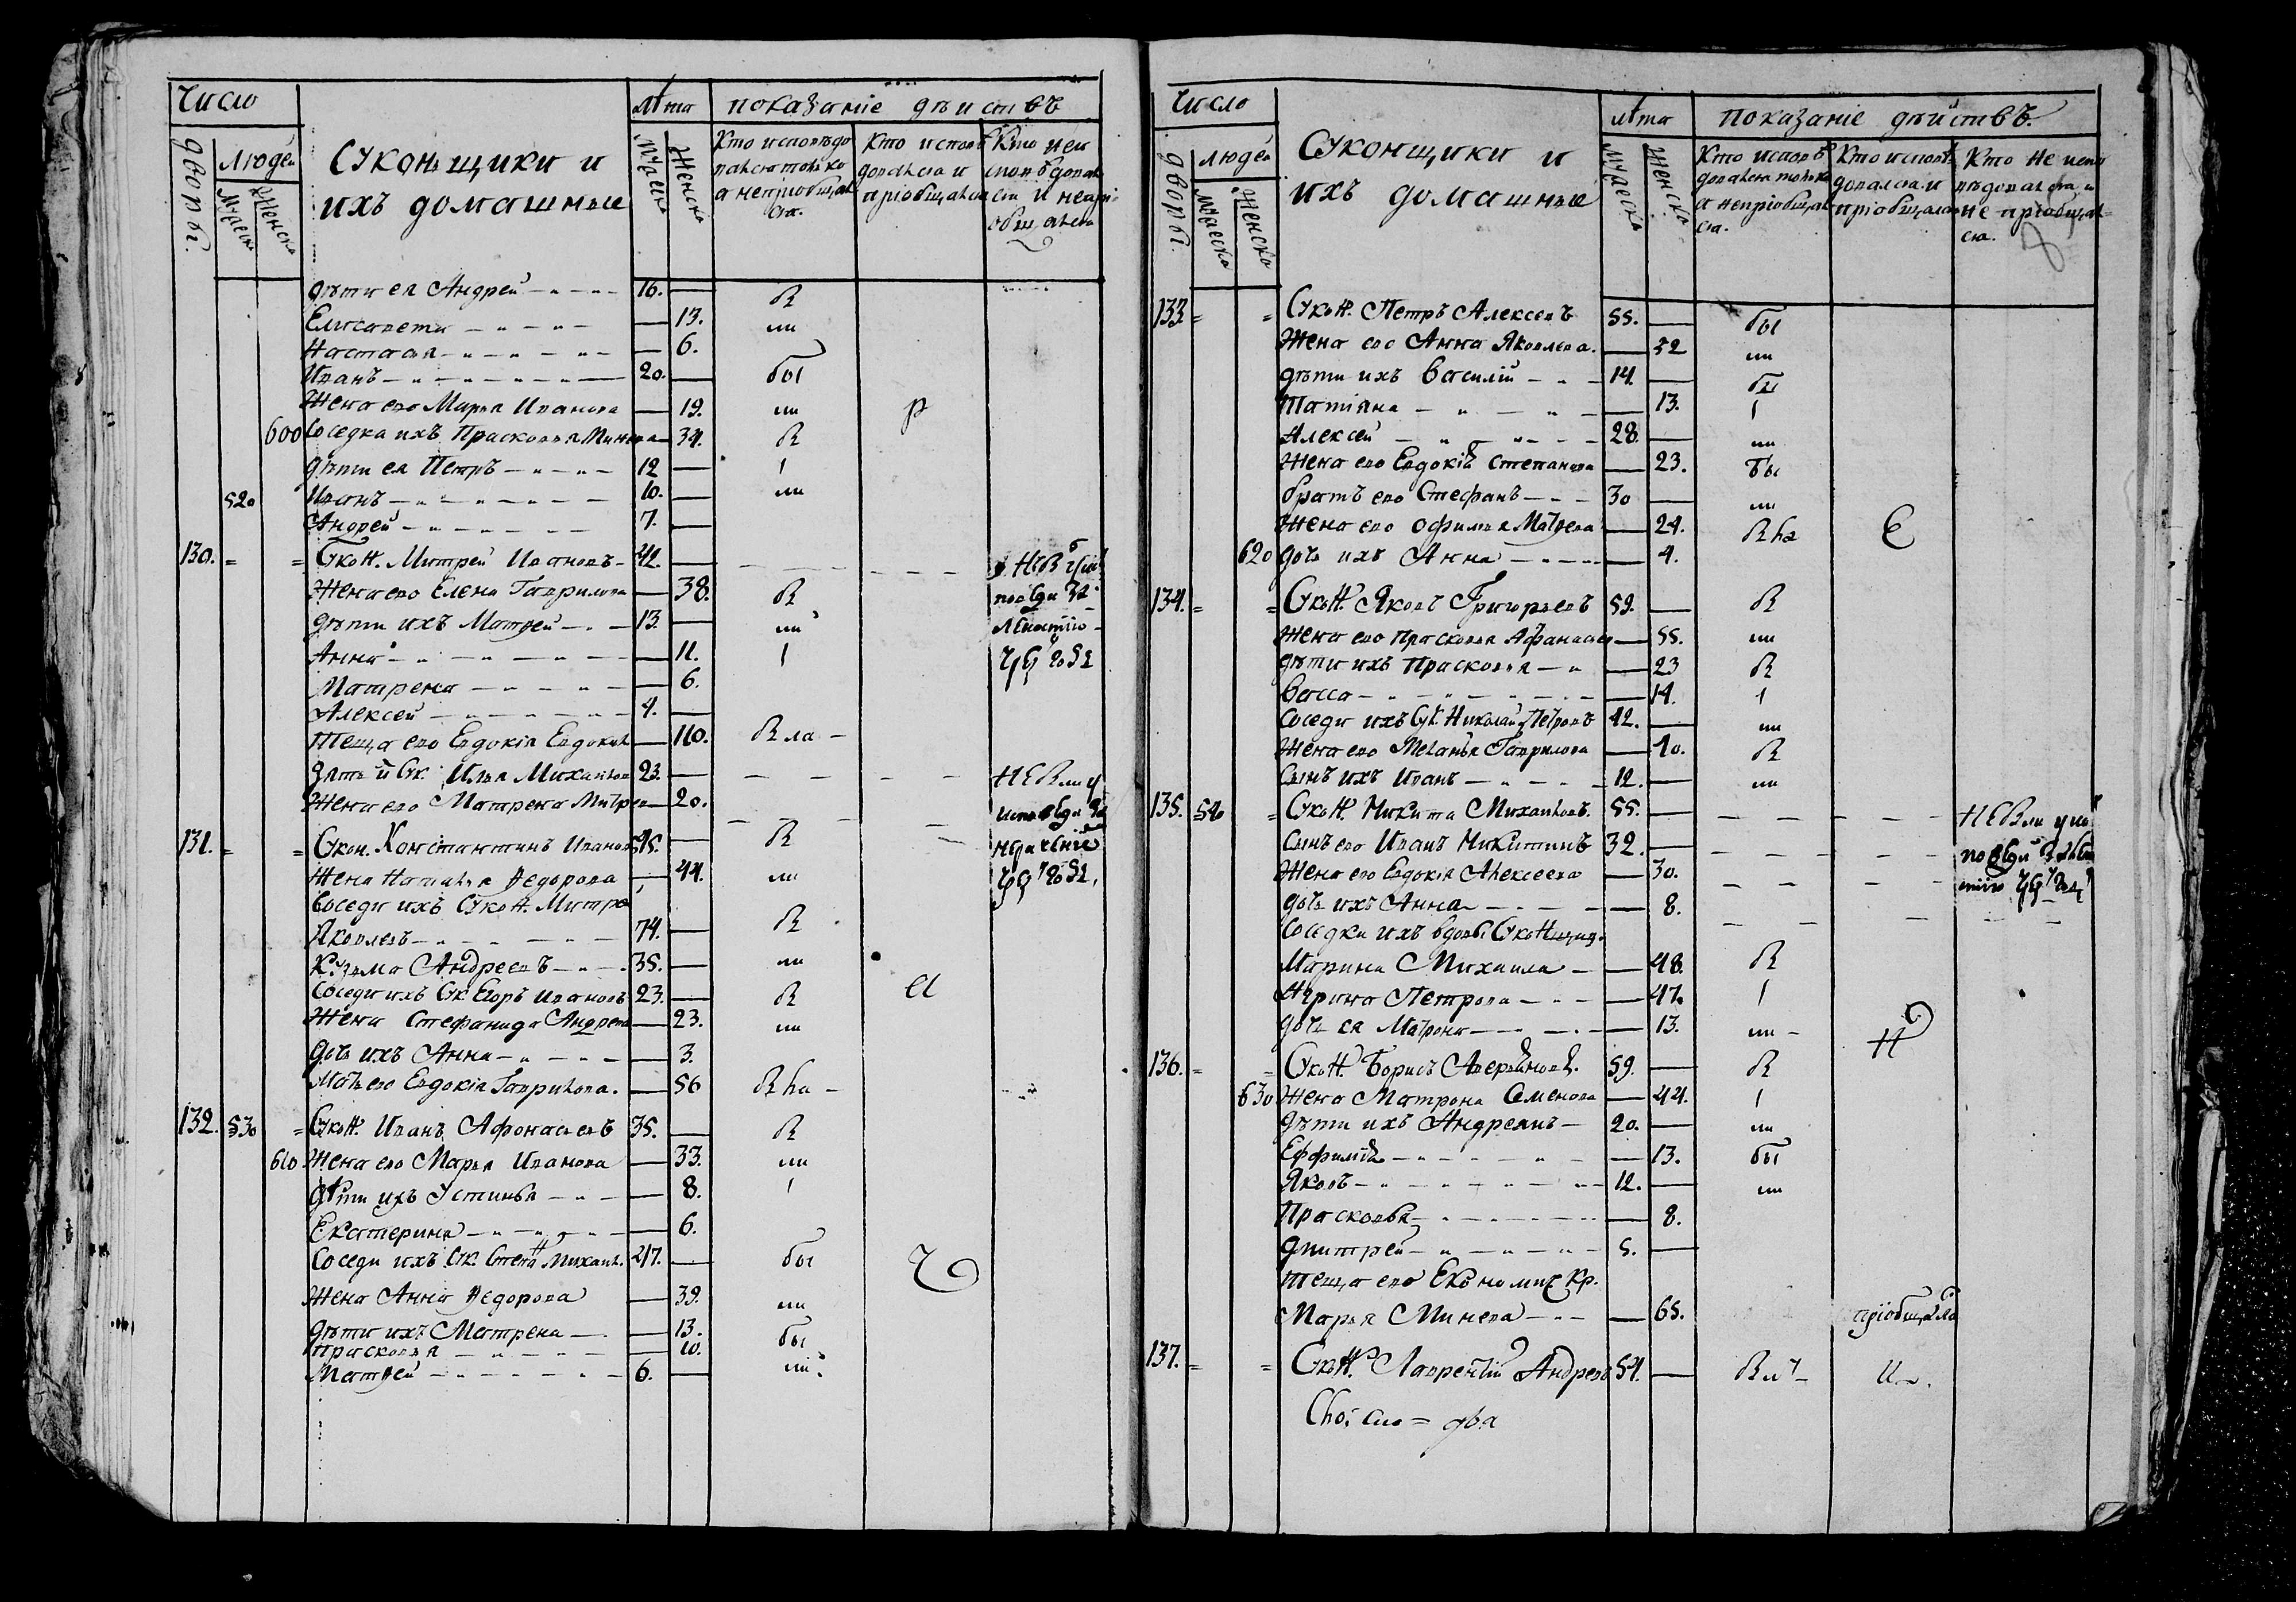 Число
Люде
Дворы
Мужеска
Женска
Суконъщики и
ихъ домашные
лѣта
Мужеска
Женска
показаніе дѣиствъ
Кто исповѣдо
вался только
а непріобщал
ся.
Кто исповѣ
довался и
пріобщался
Кто неи
сповѣдовал
ся и непрі
общался
дѣти ея Андрей 16. В
Елисавета 13. ли
Настасья 6.
Иванъ 20. бы
Жена ево Марья Иванова 19. ли р
600 Соседка ихъ Прасковья Минева 34. В
дѣти ея Петръ 12 І
520 Иванъ 10. ли
Андрей 7.
130. = = Сукон. Митрей Ивановъ 42.
Жена ево Елена Гаврилова 38. В
дѣти ихъ Матвей 13. ли
Анна 11. І
Матрена 6.
Алексей 4.
Теща ево Евдокія Евдоким 110. В ла
зять и Сук. Илья Михайлов 23. Не были у
Жена ево Матрена Митре 20.
131. = = Сукон. Константинъ Иванов 45. В
Жена Наталья Федорова 44. ли
Соседи ихъ Сукон. Митре
Яковлевъ 74. В
Кузьма Андреевъ 35. ли
Соседи ихъ Сук. Егоръ Ивановъ 23. В а
Жена Стефанида Андреева 23. ли
дочь ихъ Анна 3.
Мать ево Евдокія Гаврилова. 56 В ла
132. 530 = Сукон. Иванъ Афонасьевъ 35. В
610 Жена ево Марья Иванова 33. ли
дѣти ихъ Устинья 8. І
Екатерина 6.
Соседи ихъ Сук. Степан Михайл. 47. бы ч
Жена Анна Федорова 39. ли
дѣти ихъ Матрена 13. бы
Прасковья 10.
Матвей 6. ли
Число
Люде
Дворы
Мужеска
Женска
Суконщики и
ихъ домашные
лѣта
Мужеска
Женска
показаніе дѣйствъ.
Кто исповѣ
довался только
а непріобщал
ся.
Кто исповѣ
довался и
пріобщался
Кто не испо
вѣдовался и
не пріобщал
ся.
133 = = Сукон. Петръ Алексеевъ 55. бы
Жена ево Анна Яковлева. 52 ли
дѣти ихъ Василій 14. бы
Татіяна 13. І
Алексей 28. ли
Жена ево Евдокія Степанова 23. бы
братъ ево Стефанъ 30 ли
Жена ево Офимья Матвеева 24. В ла Е
620 дочь ихъ Анна 4.
134. = = Сукон. Яковъ Григорьевъ 59. В
Жена ево Прасковья Афанасьев 55. ли
дѣти ихъ Прасковья 23 В
Васса 14. І
Соседи ихъ Сук. Николай Петровъ 42. ли
Жена ево Меланья Гаврилова 40. В
Сынъ ихъ Иванъ 12. ли
135. 540 = Сукон. Никита Михайловъ. 55. Не были у ис
Сынъ ево Иванъ Никитинъ 32.
Жена ево Евдокія Алексеева 30.
дочь ихъ Анна 8.
Соседки ихъ вдовы Суконщиц.
Марина Михаила 48. В
Ирина Петрова 47. І
дочь ея Матрона 13. ли Н
136. = = Сукон. Борисъ Аверьяновъ. 59. В
630 Жена Матрона Семенова 44. І
дѣти ихъ Андреянъ 20. ли
Еффимія 13. бы
Яковъ 12. ли
Прасковья 8.
Дмитрей 5.
теща ево Економич. Кр.
Марья Минева 65. пріобщала
137. = = Сукон. Лаврентій Андреев 54. И